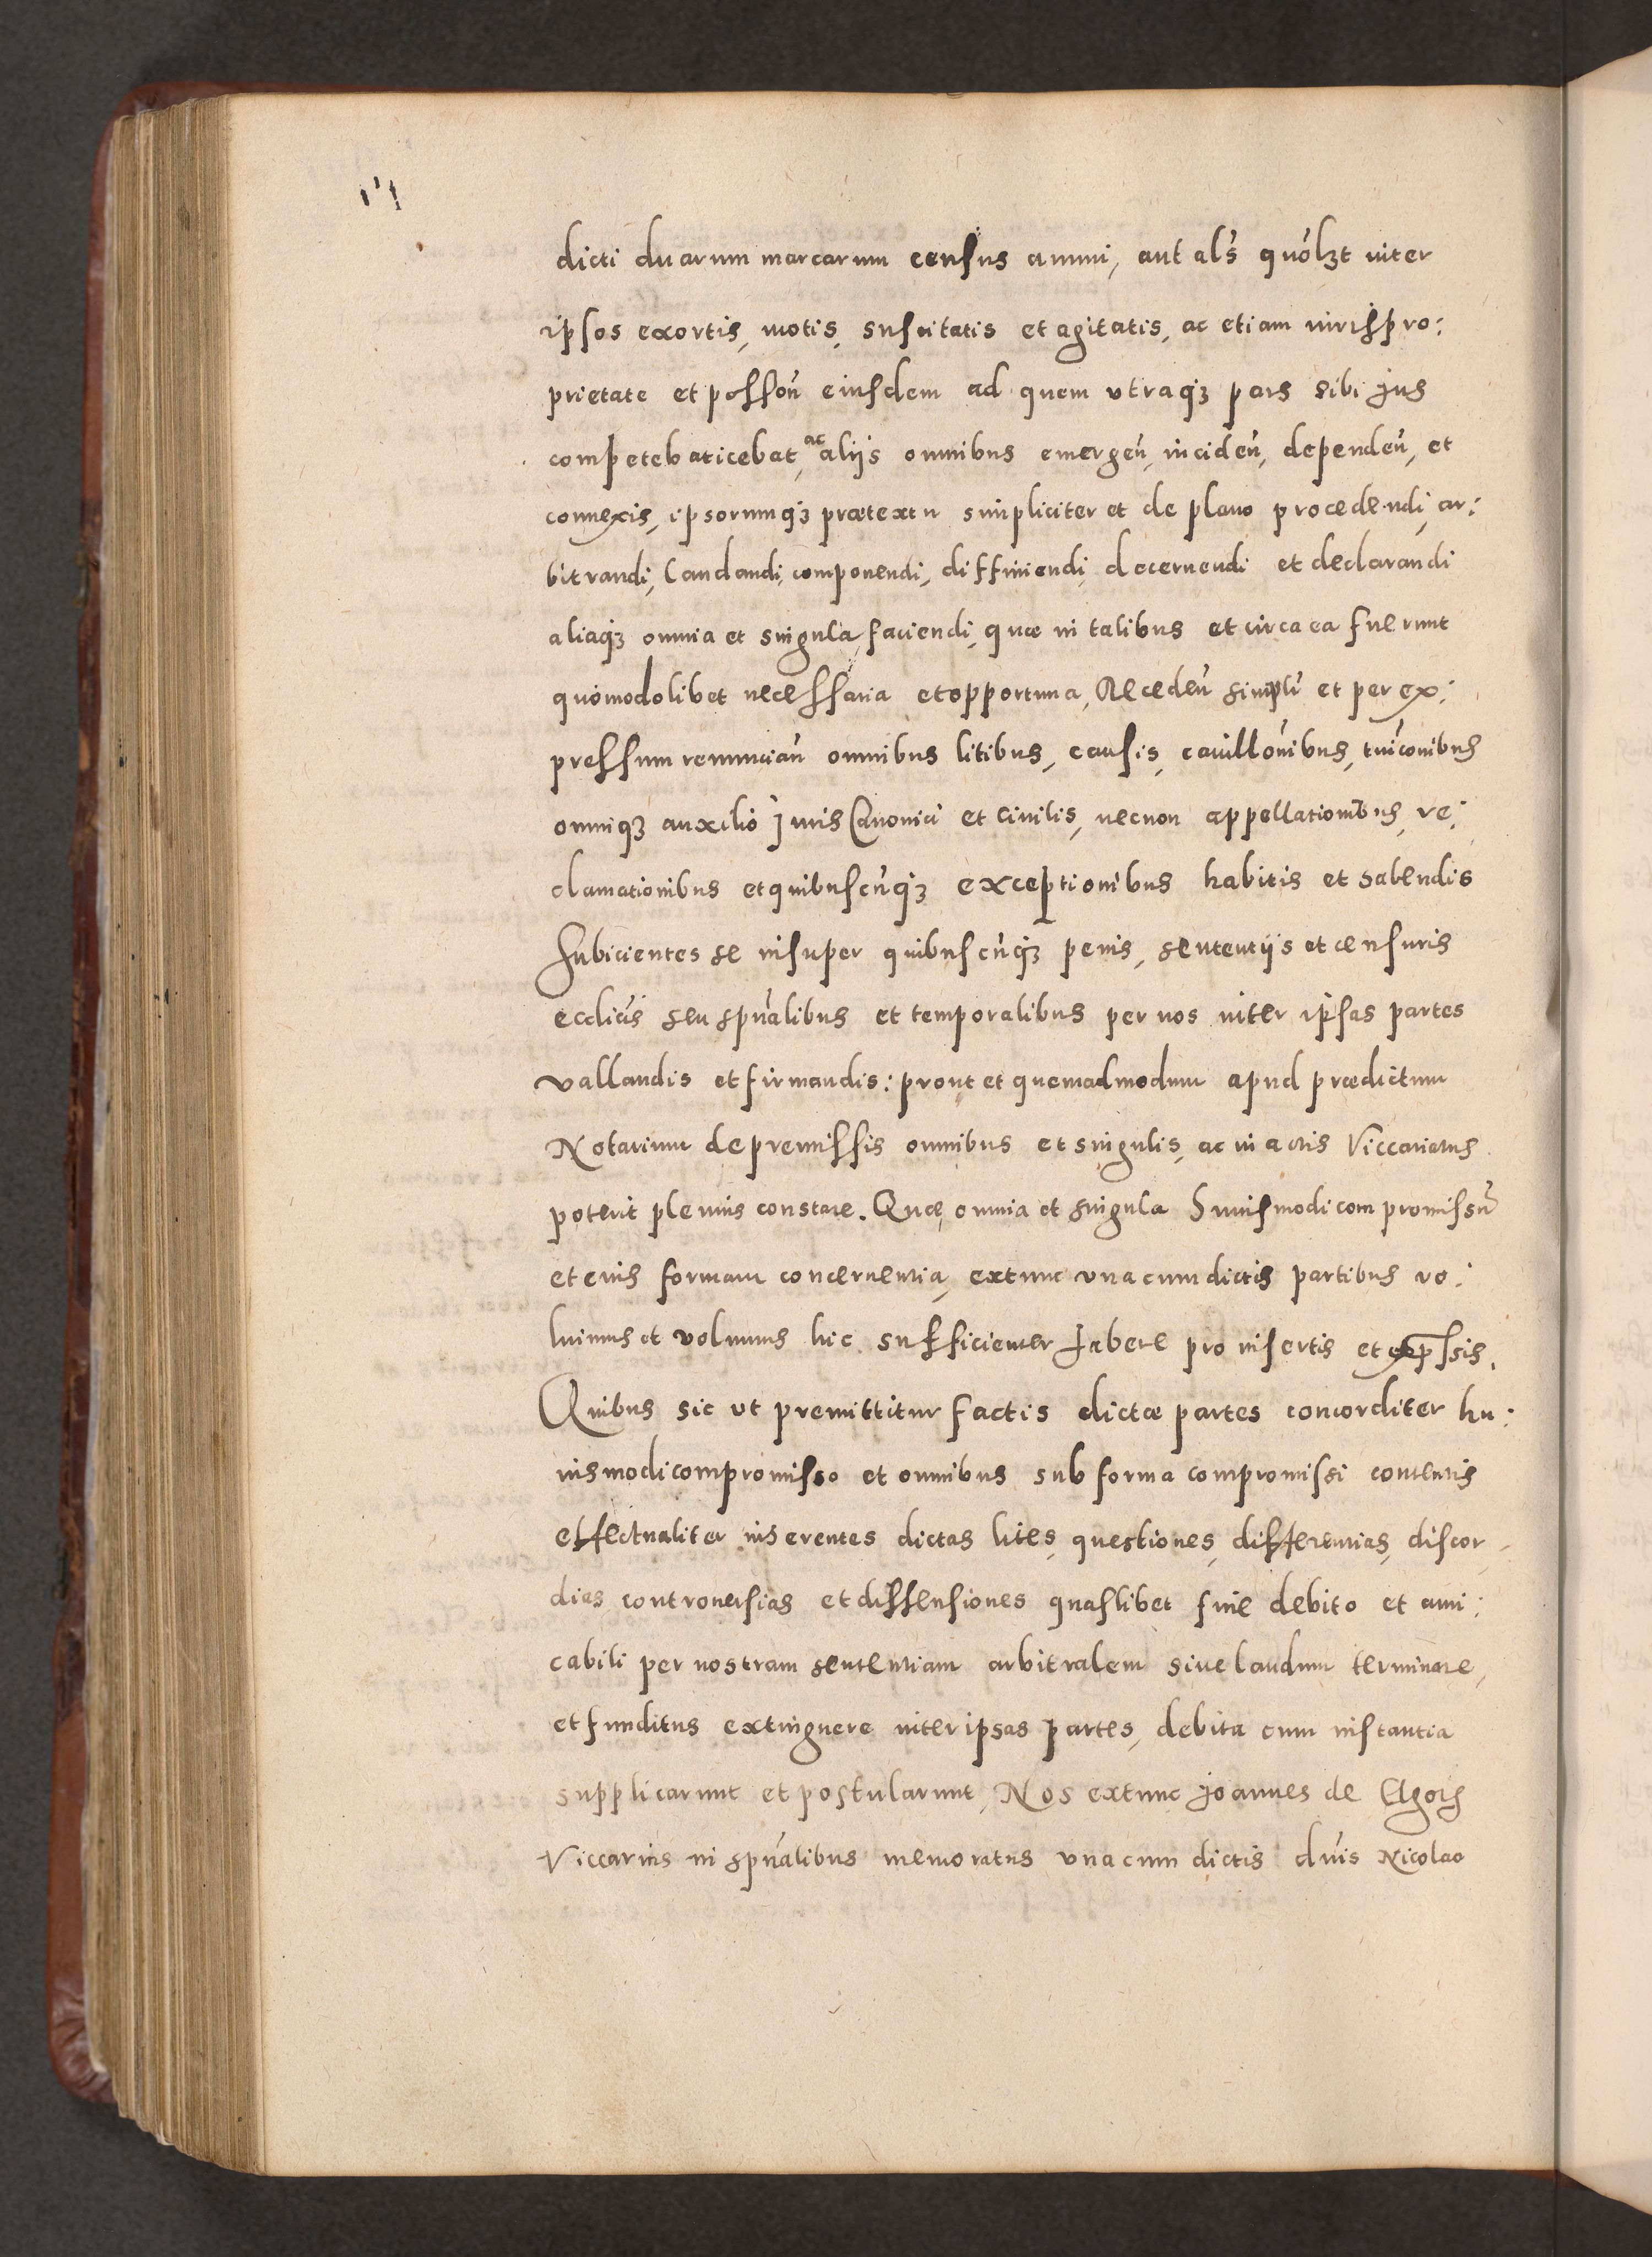 dicti duarum marcarum census annui, aut als̃ quõlꝫt inter
ipsos exortis, motis, suscitatis et agitatis, ac etiam iuris pro:
prietate et possoñ eiusdem ad quem vtraqꝫ pars sibi jus
competeb aticebat, ac alijs omnibus emergeñ, incideñ, dependeñ, et
connexis, ipsorumqꝫ prætextu simpliciter et de plano procedendi, ar:
bitrandi, laudandi, componendi, diffiniendi, decernendi et declarandi
aliaqꝫ omnia et singula, faciendi, quæ in talibus et circa ea fuerunt
quomodolibet necessaria et opportuna, Recedeñ simplr̃ et per ex:
pressum renuncian̄ omnibus litibus, causis, cauillõnibus, tuic̃onibus
omniqꝫ auxilio Juris Canonici et Ciuilis, necnon appellationibus, re:
clamationibus et quibuscũqꝫ exceptionibus habitis et habendis
Subicientes se insuper quibuscũqꝫ penis, sententijs et censuris
ecclicis̃ seu spũalibus et temporalibus per nos inter ipsas partes
vallandis et firmandis: prout et quemadmodum apud prædictum
Notarium de premissis omnibus et singulis, ac in actis Viccariatus
poterit plenius constare. Quæ omnia et singula huiusmodi compromissũ
et eius formam concernentia, extunc vna cum dictis partibus vo:
luimus et volumus hic sufficienter habere pro insertis et exp̄ssis.
Quibus sic ut premittitur factis dictæ partes concorditer hu:
iusmodi compromisso et omnibus sub forma compromissi contentis
effectualiter inherentes dictas lites, questiones, differentias, discor
dias controuersias et dissensiones quaslibet fine debito et ami:
cabili per nostram sententiam arbitralem siue laudum terminare,
et funditus extinguere inter ipsas partes, debita cum instantia
supplicarunt et postularunt, Nos extunc Joannes de Elgoth
Viccarius in spũalibus memoratus vna cum dictis dñis Nicolao